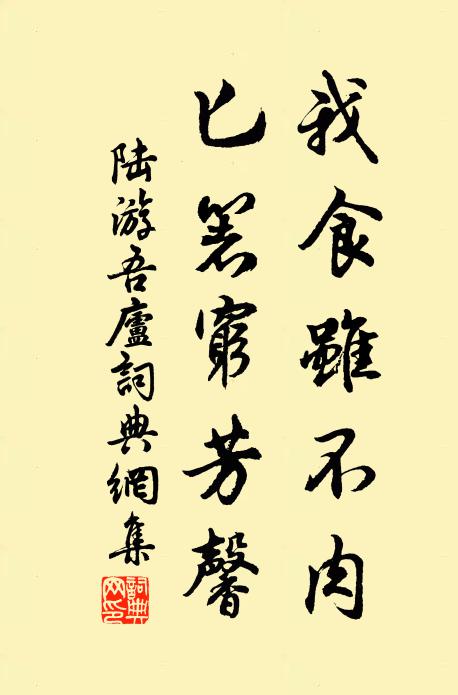 我食雖不肉
匕箸窮芳馨
陸游吾廬詞典網集
詞典
网印